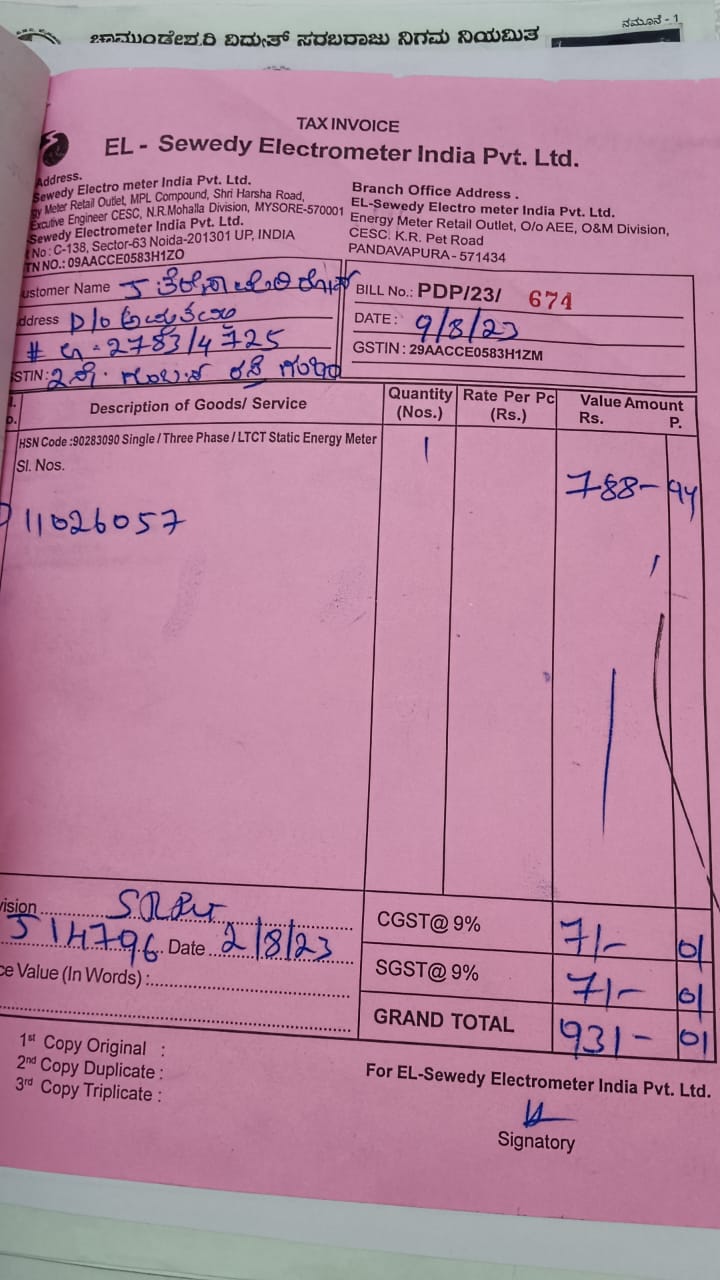 ನಮೂನೆ - 1
ಚಾಮುಂಡೇಶ್ವರಿ ವಿದ್ಯುತ್ ಸರಬರಾಜು ನಿಗಮ ನಿಯಮಿತ
TAX INVOICE
EL - Sewedy Electrometer India Pvt. Ltd.
Address.
Sewedy Electro meter India Pvt. Ltd.
gy Meter Retail Outlet, MPL Compound, Shri Harsha Road,
Excutive Engineer CESC, N.R.Mohalla Division, MYSORE-570001
Sewedy Electrometer India Pvt. Ltd.
t No : C-138, Sector-63 Noida-201301 UP, INDIA
TN NO.: 09AACCE0583H1ZO
Branch Office Address .
EL-Sewedy Electro meter India Pvt. Ltd.
Energy Meter Retail Outlet, O/o AEE, O&M Division,
CESC. K.R. Pet Road
PANDAVAPURA - 571434
ustomer Name
ddress D/o
# 2783/4725
STIN:
BILL No.: PDP/23/ 674
DATE: 9/8/23
GSTIN : 29AACCE0583H1ZM
Description of Goods/ Service
Quantity (Nos.)
Rate Per Pc (Rs.)
Value Amount
Rs. P.
HSN Code :90283090 Single / Three Phase / LTCT Static Energy Meter 1
Sl. Nos.
788- 94
11026057
vision
14796 Date 2/8/23
ce Value (In Words) :
CGST@ 9% 71/- 01
SGST@ 9% 71/- 01
GRAND TOTAL 931- 01
1st Copy Original :
2nd Copy Duplicate :
3rd Copy Triplicate :
For EL-Sewedy Electrometer India Pvt. Ltd.
Signatory